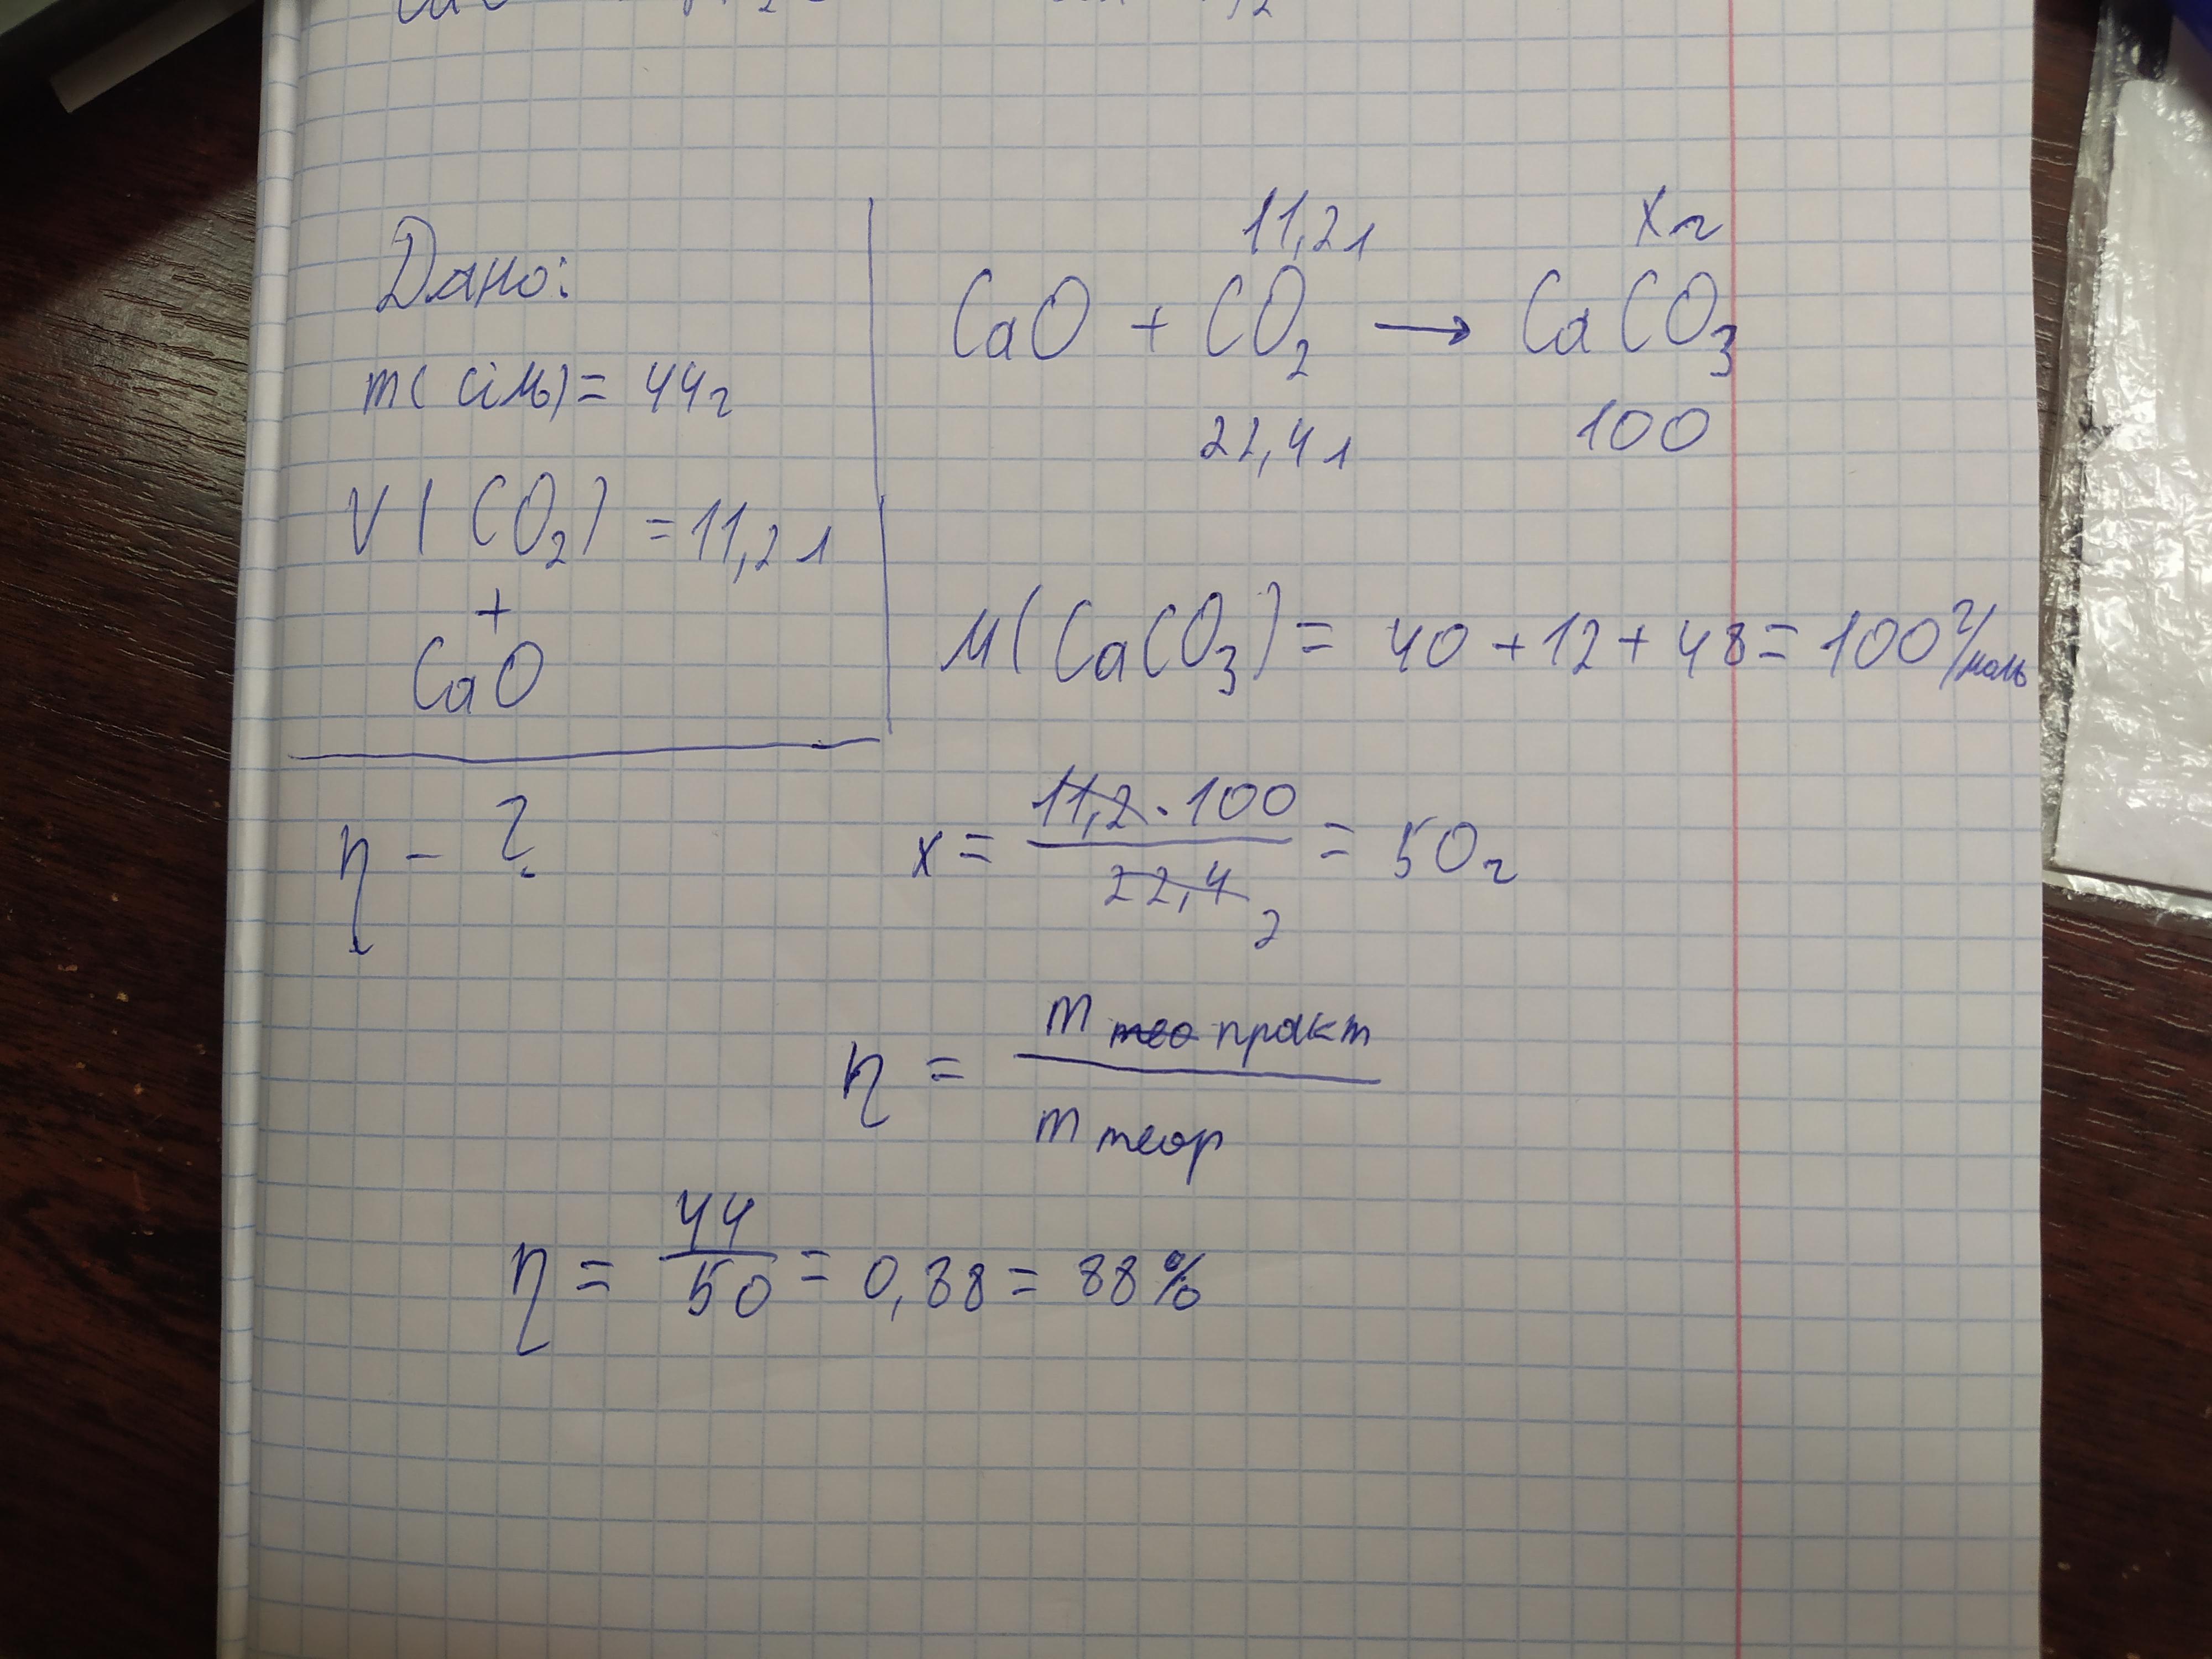 Дано:
m( сіль) = 44г
V ( CO₂) = 11,2л
+
CaO
η - ?
11,2л xг
CaO + CO₂ → CaCO₃
22,4л 100
M(CaCO₃) = 40 + 12 + 48 = 100 г/моль
x = 11,2 · 100 / 22,4 2 = 50г
η = m тео практ / m теор
η = 44 / 50 = 0,88 = 88%